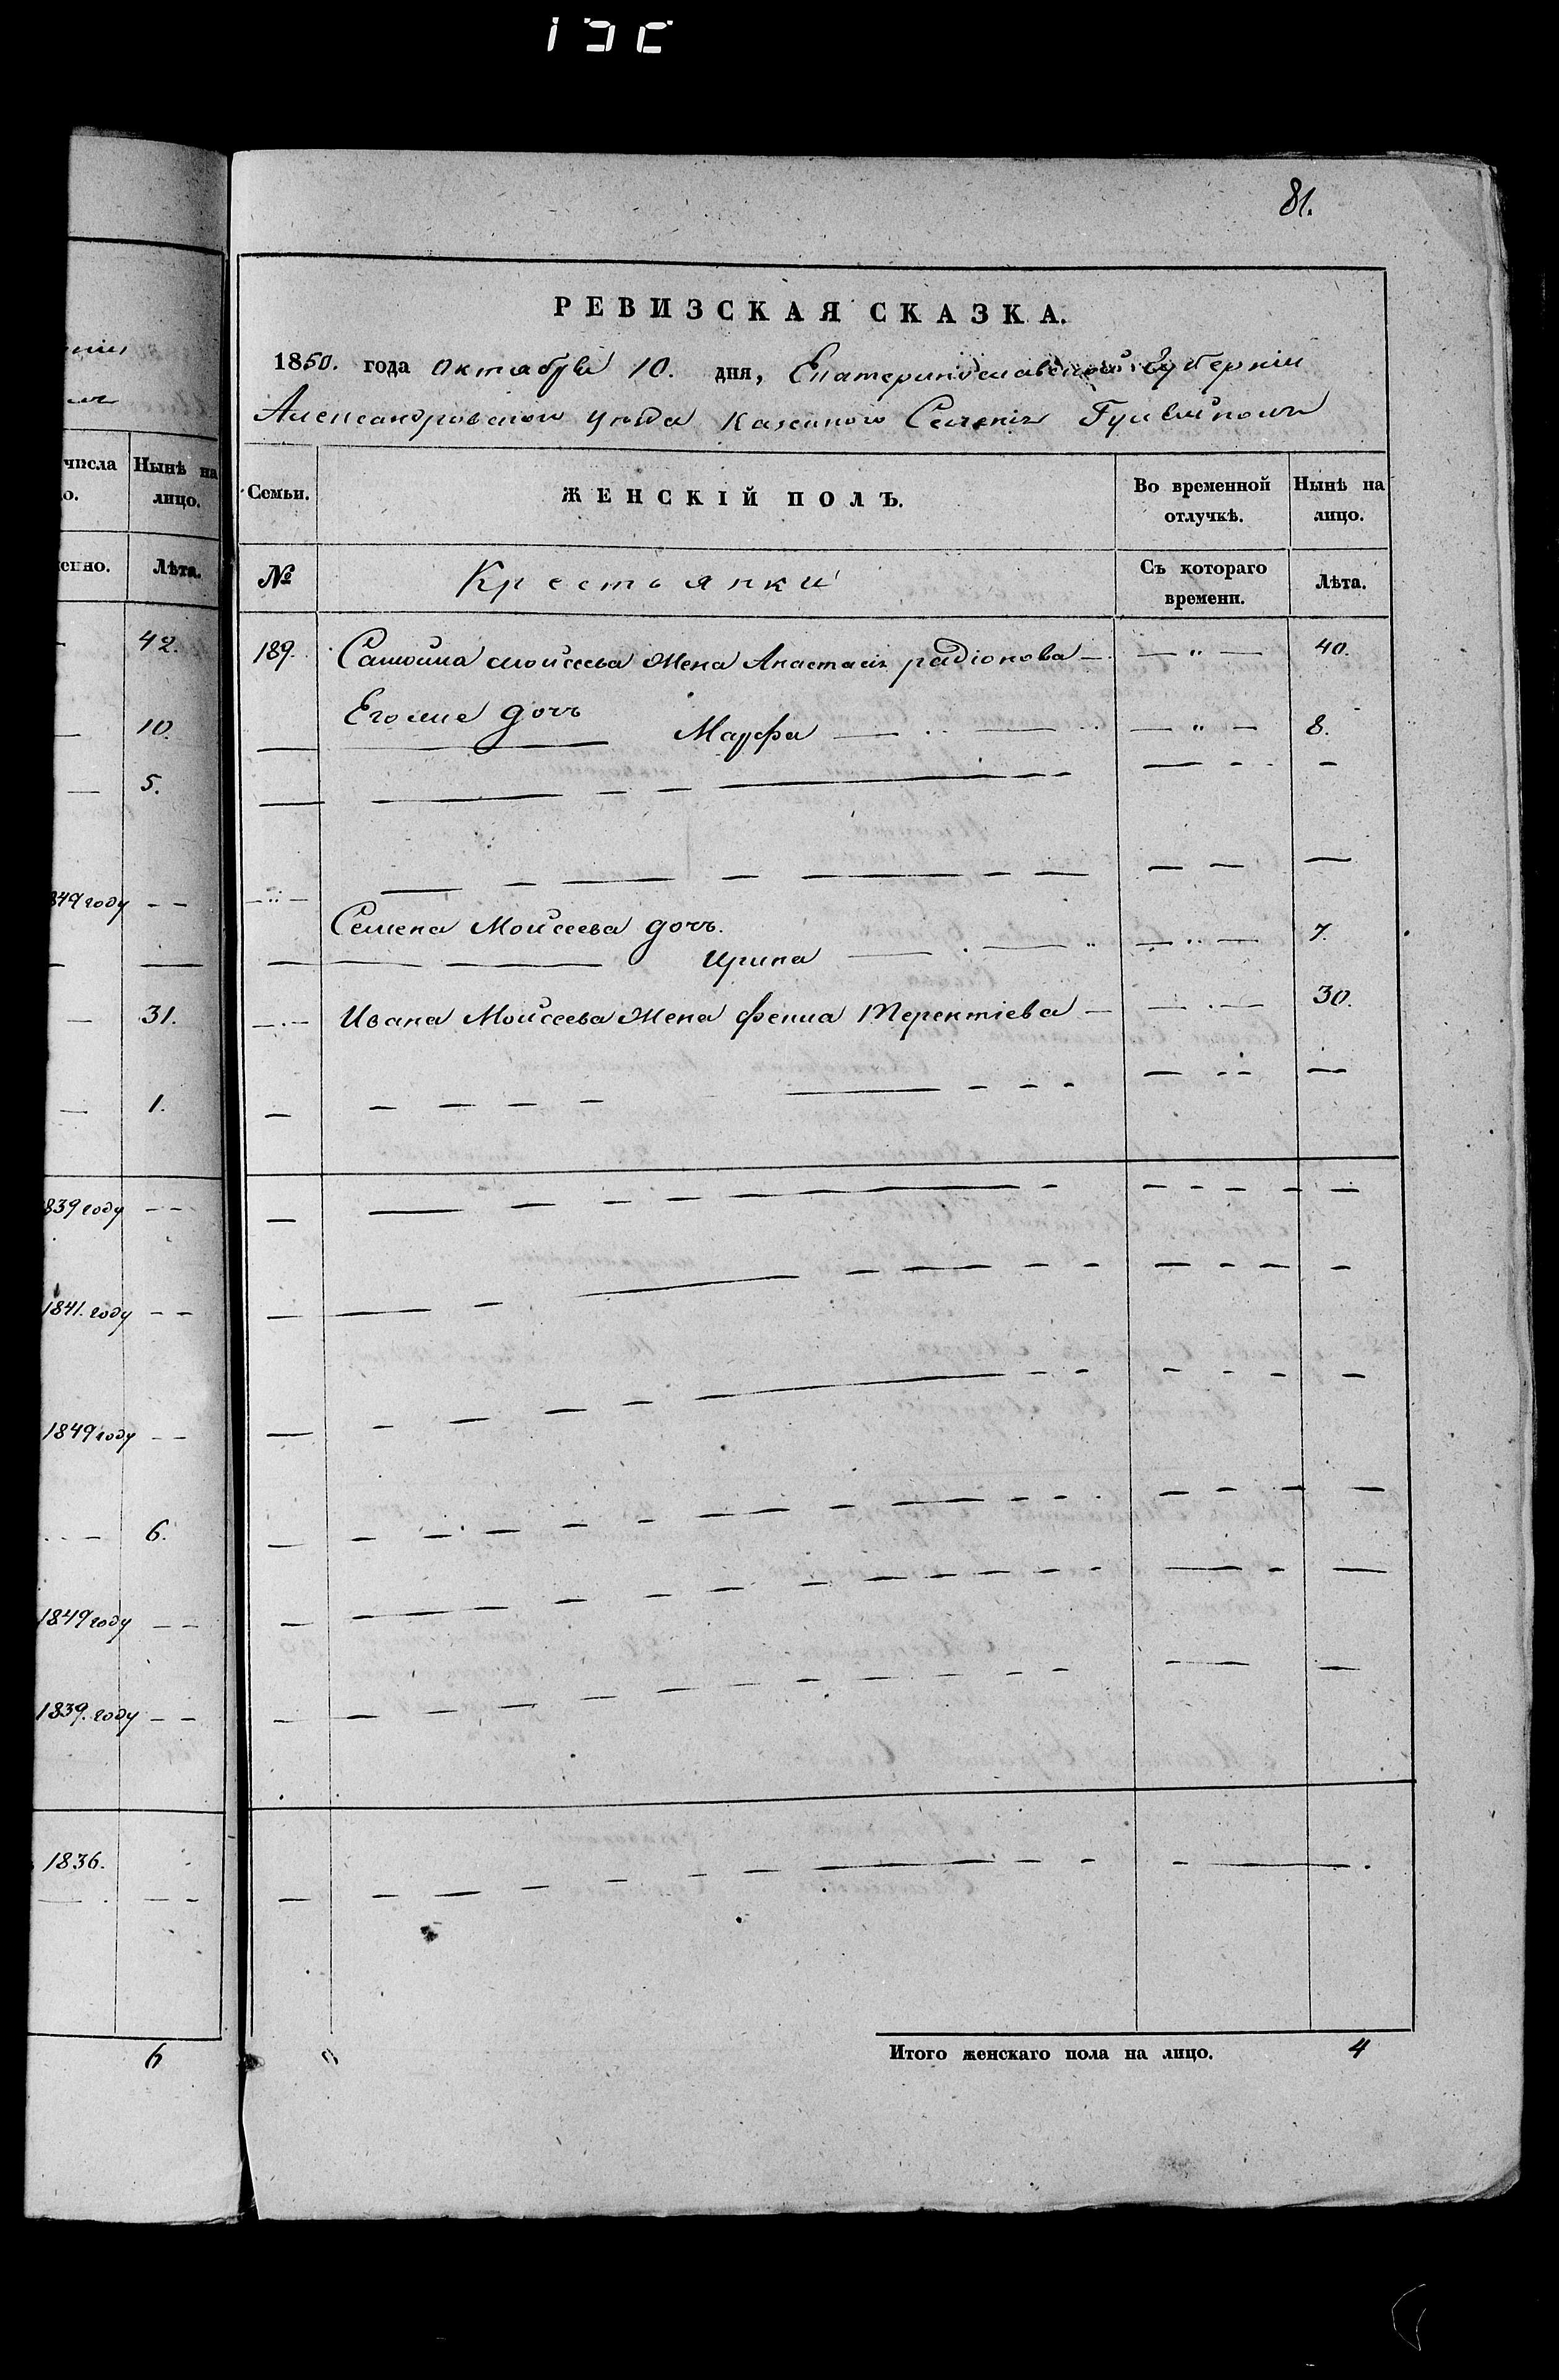 81.
РЕВИЗСКАЯ СКАЗКА.
1850. года Октября 10. дня, Екатеринославской Губерніи
Александровскаго уѣзда Казеннаго Селенія Гуляйполя
числа
Нынѣ на
лицо.
Лѣта.
42.
10.
5.
849 году
31.
1.
839 году
1841. году
1849 году
6.
1849 году
1839. году
1836.
6
Семьи.
ЖЕНСКІЙ ПОЛЪ.
Во временной
отлучкѣ.
Нынѣ на
лицо.
№
Крестьянки
Съ котораго
времени.
Лѣта.
189. Самойла моисеева Жена Анастасія радіонова — — " — 40.
Его же дочь
Марфа — " — 8.
Семена Моисеева дочь.
Ирина 7.
Ивана Моисеева Жена Фекла Терентіева — 30.
Итого женскаго пола на лицо. 4